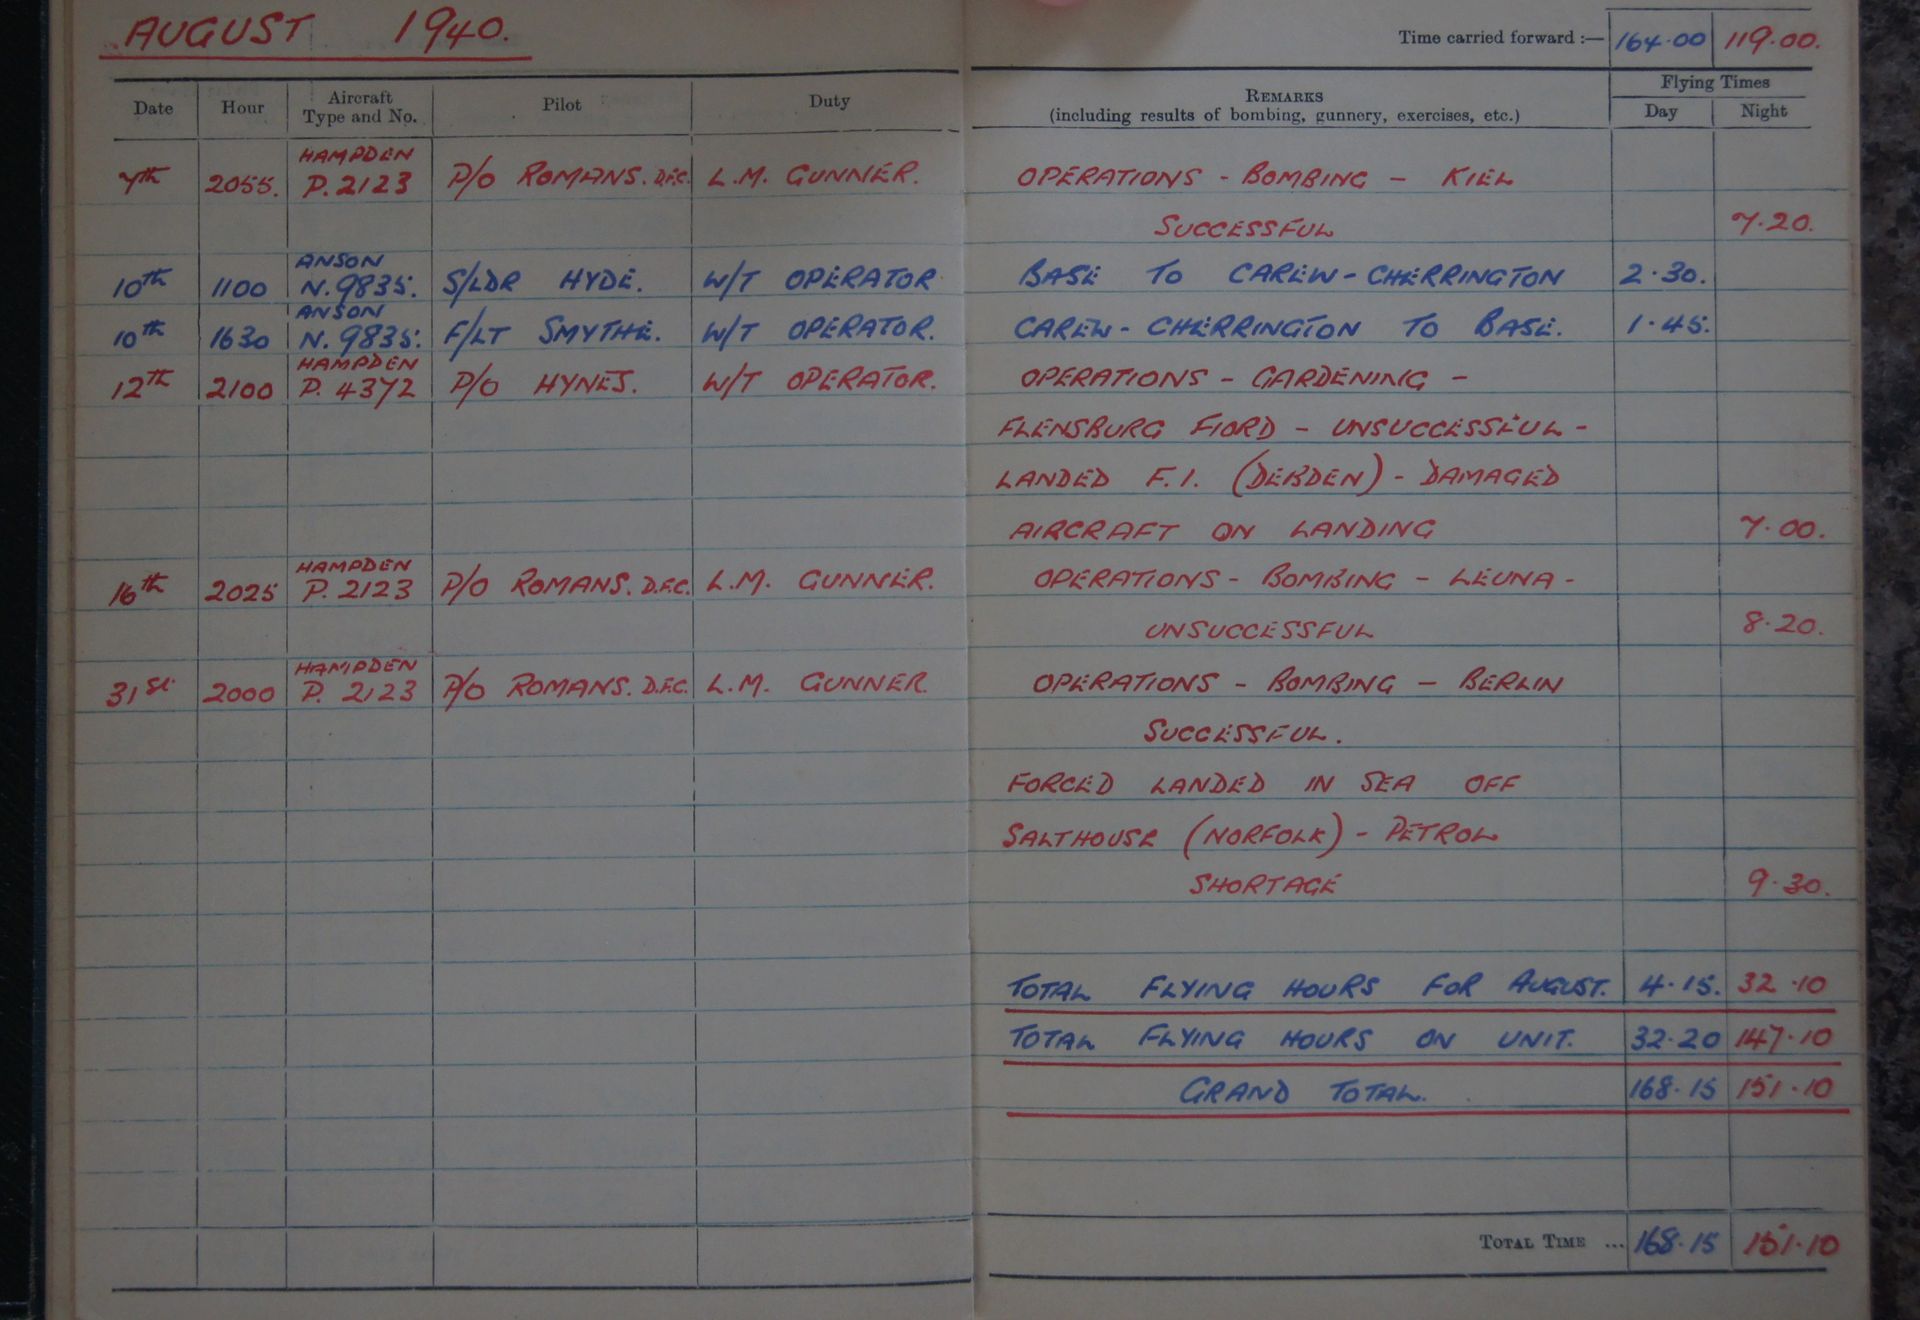 AUGUST 1940.
Time carried forward :— 164.00 119.00.
Date Hour Aircraft Type and No. Pilot Duty REMARKS (including results of bombing, gunnery, exercises, etc.) Flying Times Day Night
7th 2055. HAMPDEN P.2123 P/O ROMANS. D.F.C. L.M. GUNNER. OPERATIONS - BOMBING - KIEL
SUCCESSFUL 7.20.
10th 1100 ANSON N.9835. S/LDR HYDE. W/T OPERATOR BASE TO CAREW-CHERRINGTON 2.30.
10th 1630 ANSON N.9835. F/LT SMYTHE. W/T OPERATOR. CAREW-CHERRINGTON TO BASE. 1.45.
12th 2100 HAMPDEN P. 4372 P/O HYNES. W/T OPERATOR. OPERATIONS - GARDENING -
FLENSBURG FIORD - UNSUCCESSFUL -
LANDED F.I. (DEBDEN) - DAMAGED
AIRCRAFT ON LANDING 7.00.
16th 2025 HAMPDEN P. 2123 P/O ROMANS. D.F.C. L.M. GUNNER. OPERATIONS - BOMBING - LEUNA -
UNSUCCESSFUL 8.20.
31st 2000 HAMPDEN P. 2123 P/O ROMANS. D.F.C. L.M. GUNNER. OPERATIONS - BOMBING - BERLIN
SUCCESSFUL.
FORCED LANDED IN SEA OFF
SALTHOUSE (NORFOLK) - PETROL
SHORTAGE 9.30.
TOTAL FLYING HOURS FOR AUGUST. 4.15. 32.10
TOTAL FLYING HOURS ON UNIT. 32.20 147.10
GRAND TOTAL. 168.15 151.10
TOTAL TIME ... 168.15 151.10